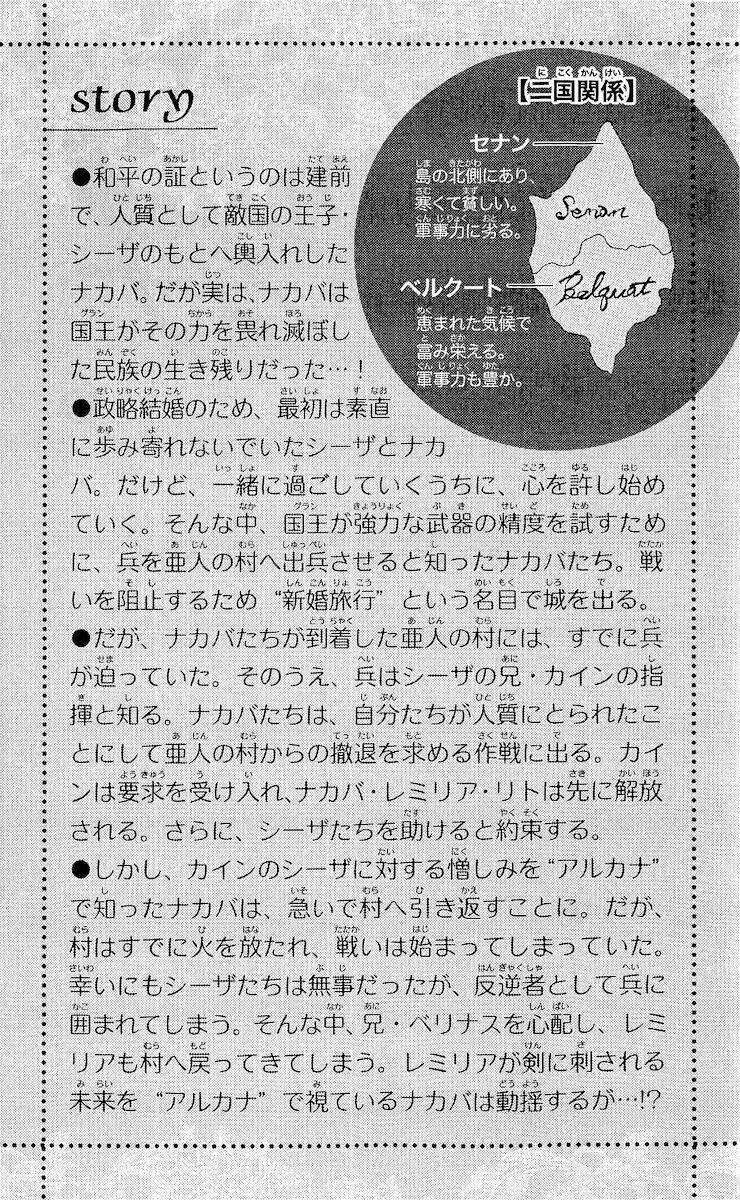 story
【二国関係】
セナン
島の北側にあり、
寒くて貧しい。
軍事力に劣る。
Senan
ベルクート
恵まれた気候で
富み栄える。
軍事力も豊か。
Belquat
●和平の証というのは建前
で、人質として敵国の王子・
シーザのもとへ輿入れした
ナカバ。だが実は、ナカバは
国王がその力を畏れ滅ぼし
た民族の生き残りだった…！
●政略結婚のため、最初は素直
に歩み寄れないでいたシーザとナカ
バ。だけど、一緒に過ごしていくうちに、心を許し始め
ていく。そんな中、国王が強力な武器の精度を試すため
に、兵を亜人の村へ出兵させると知ったナカバたち。戦
いを阻止するため“新婚旅行”という名目で城を出る。
●だが、ナカバたちが到着した亜人の村には、すでに兵
が迫っていた。そのうえ、兵はシーザの兄・カインの指
揮と知る。ナカバたちは、自分たちが人質にとられたこ
とにして亜人の村からの撤退を求める作戦に出る。カイ
ンは要求を受け入れ、ナカバ・レミリア・リトは先に解放
される。さらに、シーザたちを助けると約束する。
●しかし、カインのシーザに対する憎しみを“アルカナ”
で知ったナカバは、急いで村へ引き返すことに。だが、
村はすでに火を放たれ、戦いは始まってしまっていた。
幸いにもシーザたちは無事だったが、反逆者として兵に
囲まれてしまう。そんな中、兄・ベリナスを心配し、レミ
リアも村へ戻ってきてしまう。レミリアが剣に刺される
未来を“アルカナ”で視ているナカバは動揺するが…!?